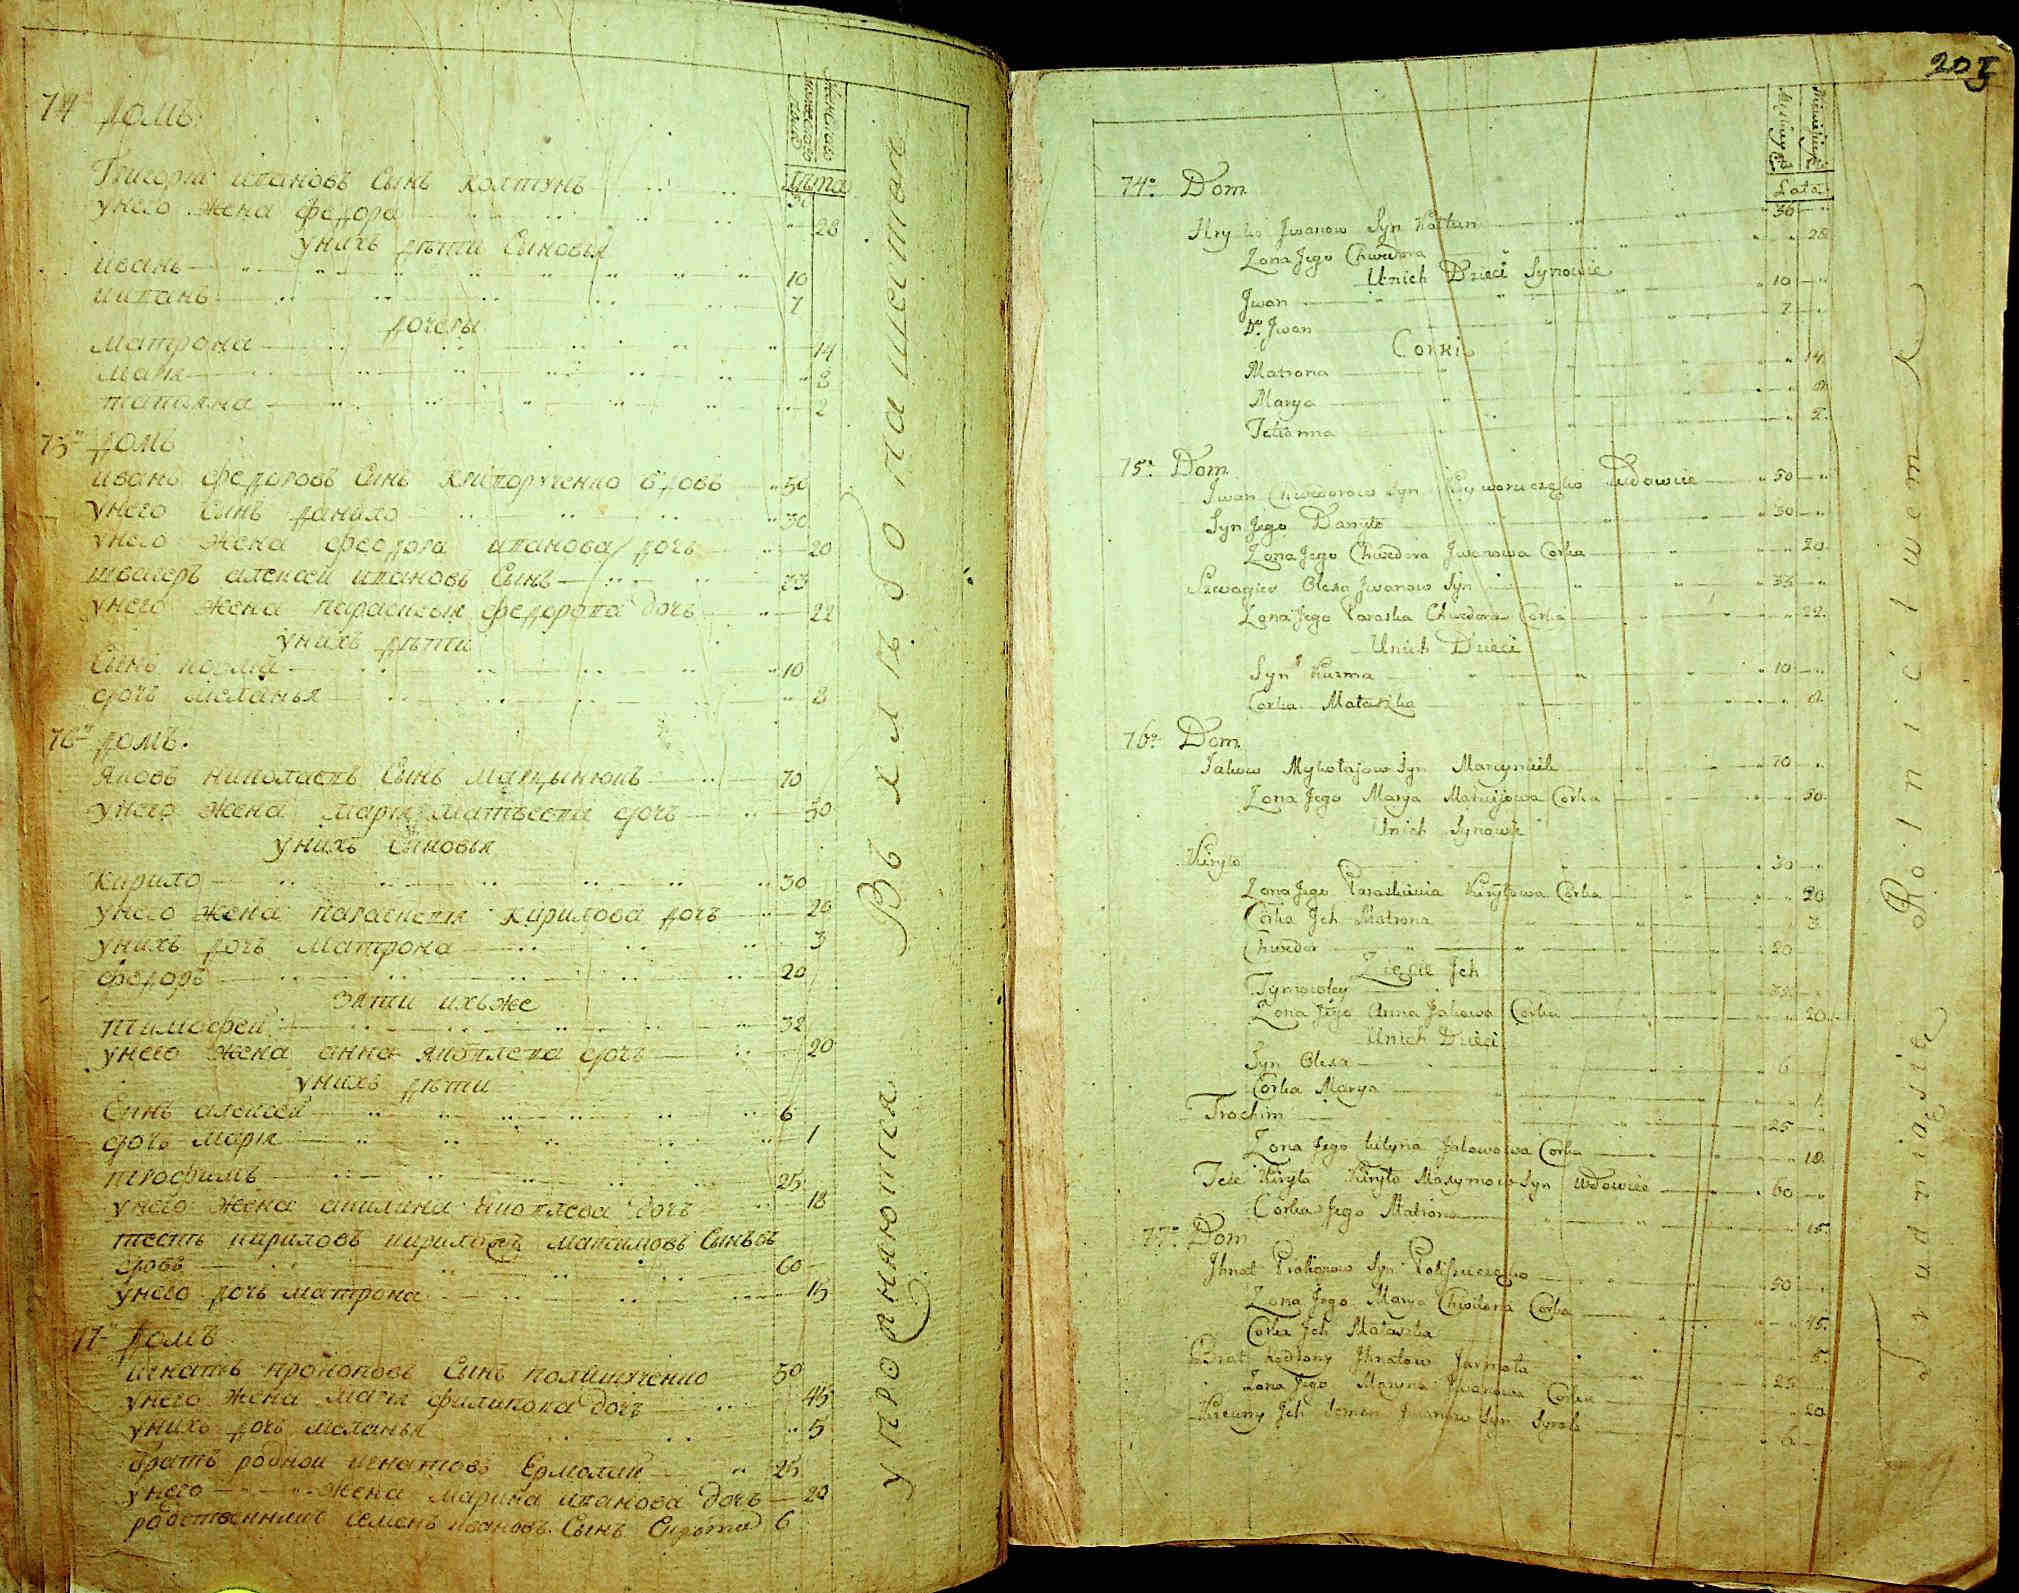 74 домъ
мужеского полу
женского
Лѣта
Григори ивановъ Сынъ Колтунъ 36
унего жена федора 28
унихъ дѣти Сыновья
иванъ 10
ииванъ 7
дочеры
матрона 14
мария 8
татияна 2
75 домъ
иванъ федоровъ Сынъ вдовъ 50
унего Сынъ данило 30
унего жена феодора иванова дочъ 20
швагеръ алексей ивановъ Сынъ 33
унего жена параскевия федорова дочъ 22
унихъ дѣти
Сынъ козма 10
дочъ меланья 8
76 домъ.
Яковъ николаевъ Сынъ марцынюкъ 70
унего жена мария матвеева дочъ 50
унихъ Сыновья
Кирило 30
унего жена параскевия кирилова дочъ 20
унихъ дочъ матрона 3
федоръ 20
зяти ихъже
тимофей 32
унего жена анна яковлева дочъ 20
унихъ дѣти
Сынъ алексей 6
дочъ мария 1
трофимъ 25
унего жена акилина яковлева дочъ 18
тесть кириловъ кирило максимовъ Сынъ
вдовъ 60
унего дочъ матрона 15
77 домъ
игнатъ прокоповъ Сынъ полищученко 50
унего жена мария филипова дочъ 45
унихъ дочъ меланья 5
братъ родной игнатовъ Ермолай 25
унего жена марина иванова дочъ 20
родственникъ семенъ ивановъ Сынъ Сирота 6
Въ хлѣбопашестве
упрожняются
205
Męskiey
Niewieściey
Lata
74º Dom
Hryńko Jwanow Syn Kołtun 36
Zona Jego Chwedora 28
Unich Dzieci Synowie
Jwan 10
Jwan 7
Corki
Matrona 14
Marya 8
Tatianna 2
75º Dom
Jwan Chwedorow Syn Wdowiec 50
Syn Jego Danyło 30
Zona Jego Chwedora Jwanowa Corka 20
Szwagier Olexa Jwanow Syn 33
Zona Jego Paraska Chwedorow Corka 22
Unich Dzieci
Syn Kuzma 10
Corka Małaszka 8
76º Dom
Jakow Mykołajow Syn Marcyniuk 70
Zona Jego Marya Matwijowa Corka 50
Unich Synowie
Kiryło 30
Zona Jego Paraskiewia Kiryłowa Corka 20
Corka Jch Matrona 3
Chwedor 20
Zięcie Jch
Tymofiey 32
Zona Jego Anna Jakowa Corka 20
Unich Dzieci
Syn Olexa 6
Corka Marya 1
Trochim 25
Zona Jego Kulyna Jakowowa Corka 18
Teść Kiryła Kiryło Maxymow Syn Wdowiec 60
Corka Jego Matrona 15
77º Dom
Jhnat Prokopow Syn Poliszuczenko 50
Zona Jego Marya Chwilona Corka 45
Corka Jch Małaszka 5
Brat Rodzony Jhnatow Jarmoła 25
Zona Jego Maryna Jwanowa Corka 20
Krewny Jch Semen Jwanow Syn Syrota 6
Rolnictwem
trudnią się